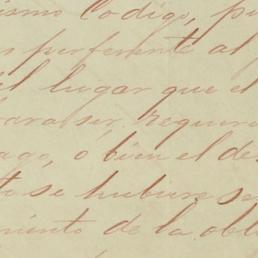 ismo Código, pu
s preferente al
el lugar que el
para ser requeri
ago, ó bien el de
to se hubiere se
miento de la obl